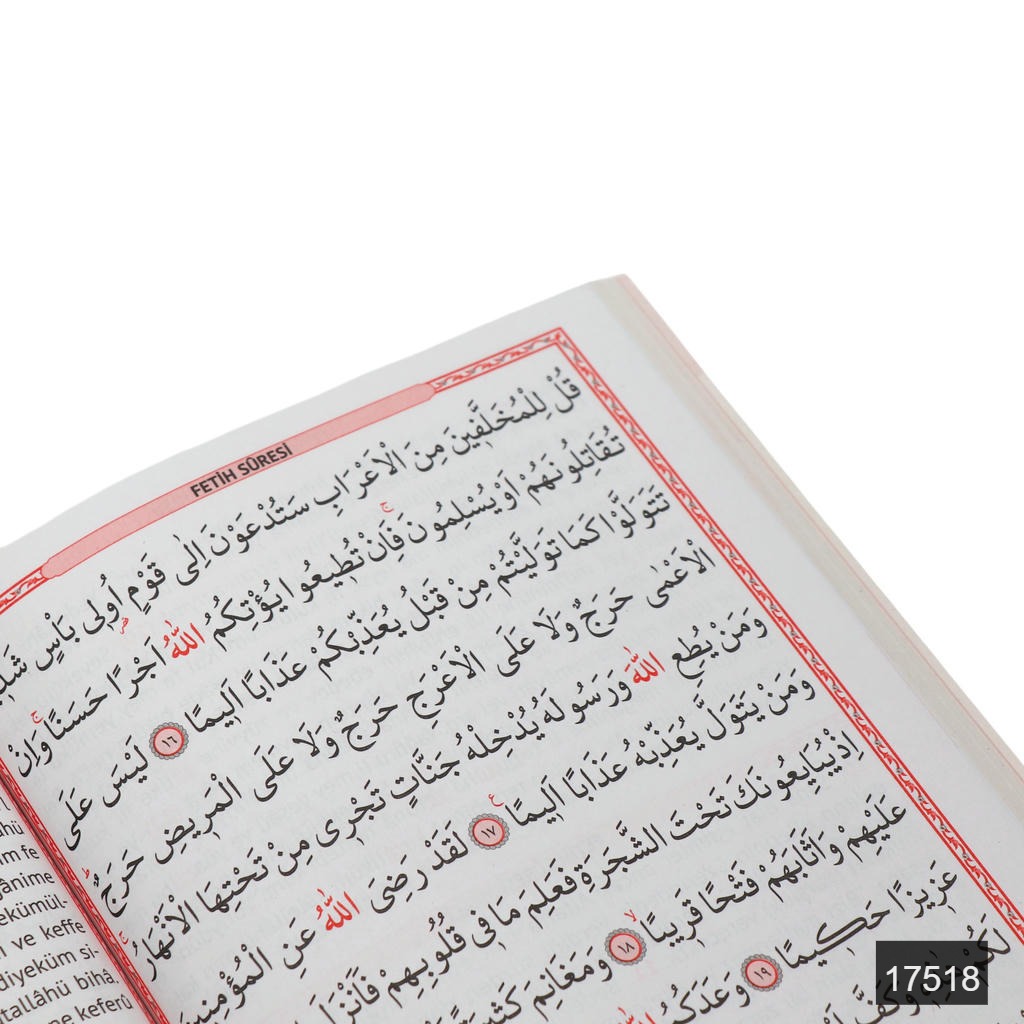 FETİH SÛRESİ
قُلْ لِلْمُخَلَّفٖينَ مِنَ الْاَعْرَابِ سَتُدْعَوْنَ اِلٰى قَوْمٍ اُولٖى بَاْسٍ
تُقَاتِلُونَهُمْ اَوْ يُسْلِمُونَۚ فَاِنْ تُطٖيعُوا يُؤْتِكُمُ اللّٰهُ اَجْرًا حَسَنًاۚ وَاِنْ
تَتَوَلَّوْا كَمَا تَوَلَّيْتُمْ مِنْ قَبْلُ يُعَذِّبْكُمْ عَذَابًا اَلٖيمًا ﴿١٦﴾ لَيْسَ عَلَى
الْاَعْمٰى حَرَجٌ وَلَا عَلَى الْاَعْرَجِ حَرَجٌ وَلَا عَلَى الْمَرٖيضِ حَرَجٌۜ
وَمَنْ يُطِعِ اللّٰهَ وَرَسُولَهُ يُدْخِلْهُ جَنَّاتٍ تَجْرٖى مِنْ تَحْتِهَا الْاَنْهَارُۚ
وَمَنْ يَتَوَلَّ يُعَذِّبْهُ عَذَابًا اَلٖيمًا ﴿١٧﴾ لَقَدْ رَضِىَ اللّٰهُ عَنِ الْمُؤْمِنٖينَ
اِذْ يُبَايِعُونَكَ تَحْتَ الشَّجَرَةِ فَعَلِمَ مَا فٖى قُلُوبِهِمْ فَاَنْزَلَ
عَلَيْهِمْ وَاَثَابَهُمْ فَتْحًا قَرٖيبًاۙ ﴿١٨﴾ وَمَغَانِمَ
عَزٖيزًا حَكٖيمًا ﴿١٩﴾ وَعَدَكُمُ
وَكَفَّ
ahü
im fe
ğânime
ekümül-
ve keffe
diyeküm si-
tallâhü bihâ,
ne keferû
17518